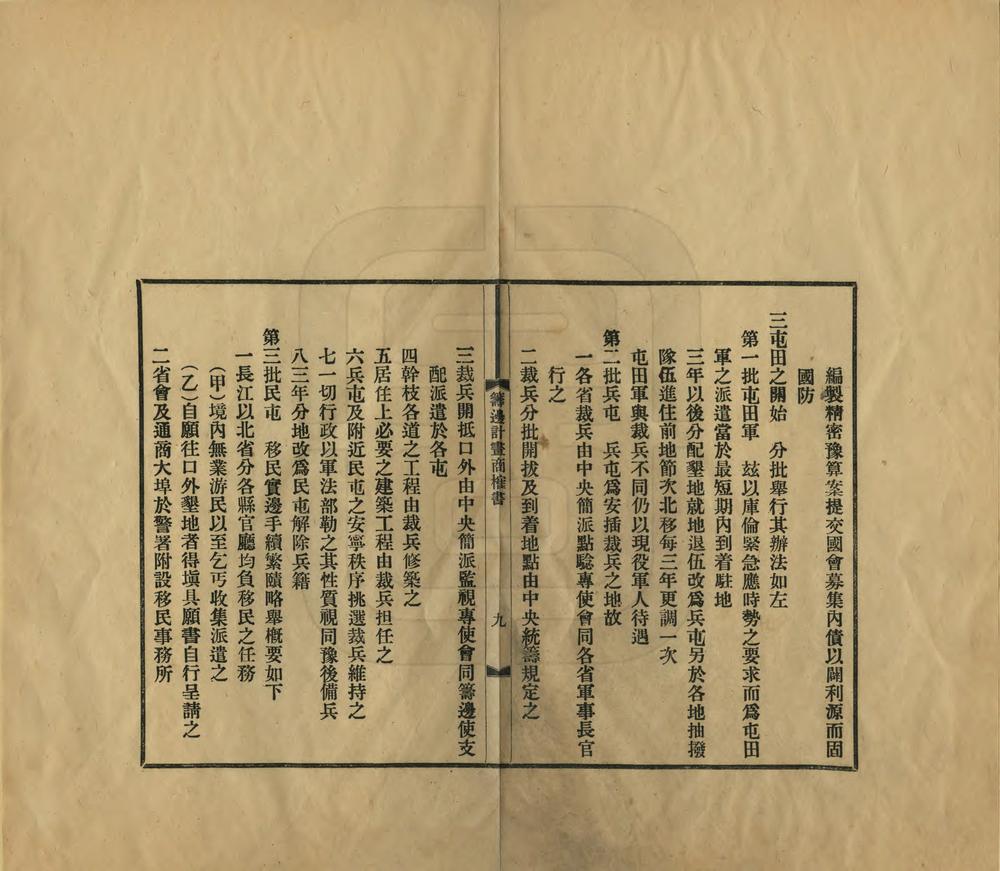 編製精密豫算案提交國會募集內債以闢利源而固
國防
三屯田之開始　分批舉行其辦法如左
第一批屯田軍　玆以庫倫緊急應時勢之要求而爲屯田
軍之派遣當於最短期內到着駐地
三年以後分配墾地就地退伍改爲兵屯另於各地抽撥
隊伍進住前地節次北移每三年更調一次
屯田軍與裁兵不同仍以現役軍人待遇
第二批兵屯　兵屯爲安插裁兵之地故
一各省裁兵由中央簡派點驗專使會同各省軍事長官
行之
二裁兵分批開拔及到着地點由中央統籌規定之
籌邊計畫商榷書
九
三裁兵開抵口外由中央簡派監視專使會同籌邊使支
配派遣於各屯
四幹枝各道之工程由裁兵修築之
五居住上必要之建築工程由裁兵担任之
六兵屯及附近民屯之安寧秩序挑選裁兵維持之
七一切行政以軍法部勒之其性質視同豫後備兵
八三年分地改爲民屯解除兵籍
第三批民屯　移民實邊手續繁賾略舉概要如下
一長江以北省分各縣官廳均負移民之任務
（甲）境內無業游民以至乞丐收集派遣之
（乙）自願往口外墾地者得塡具願書自行呈請之
二省會及通商大埠於警署附設移民事務所